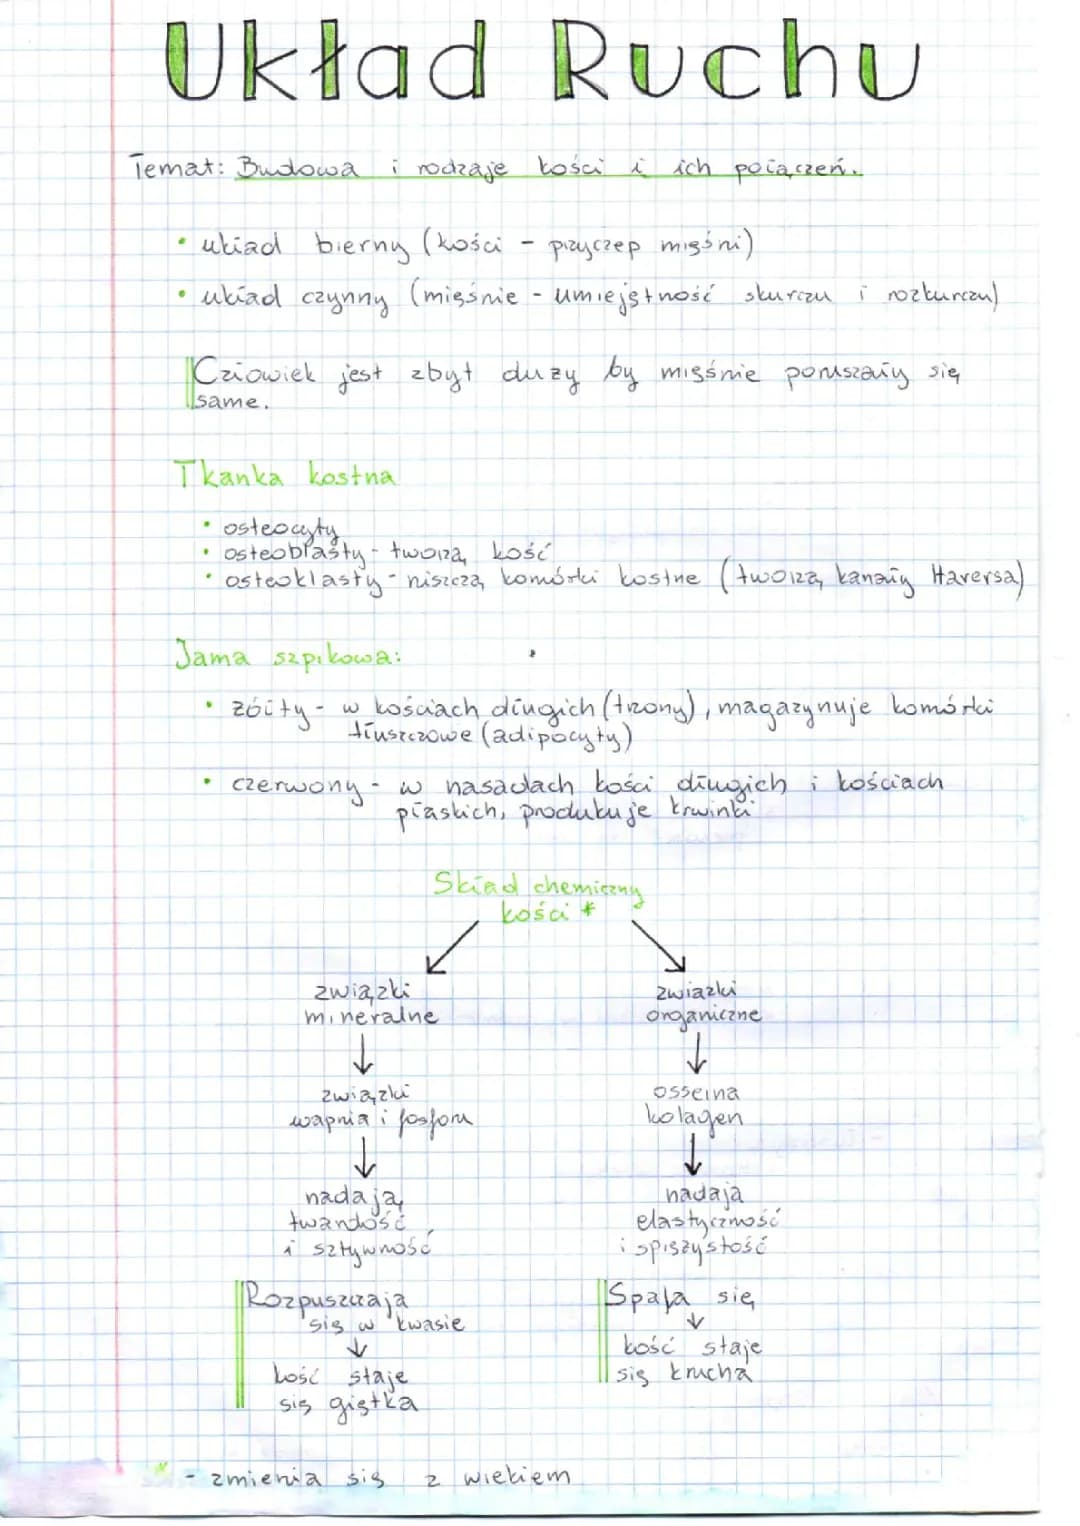 Układ Ruchu
Temat: Budowa i rodzaje kości i ich połączeń.
• układ bierny (kości - przyczep mięśni)
• układ czynny (mięśnie - umiejętność skurczu i rozkurczu)
Człowiek jest zbyt duży by mięśnie poruszały się
same.
Tkanka kostna
• osteocyty
• osteoblasty - tworzą kość
• osteoklasty - niszczą komórki kostne (tworzą kanały Haversa)
Jama szpikowa:
• żółty - w kościach długich (trzony), magazynuje komórki
tłuszczowe (adipocyty)
• czerwony - w nasadach kości długich i kościach
płaskich, produkuje krwinki
Skład chemiczny
kości *
związki
mineralne
związki
organiczne
↓
↓
związki
wapnia i fosforu
osseina
kolagen
↓
↓
nadają
twardość
i sztywność
nadają
elastyczność
i spężystość
Rozpuszczają
się w kwasie
↓
kość staje
się giętka
Spala się
↓
kość staje
się krucha
* - zmienia się z wiekiem